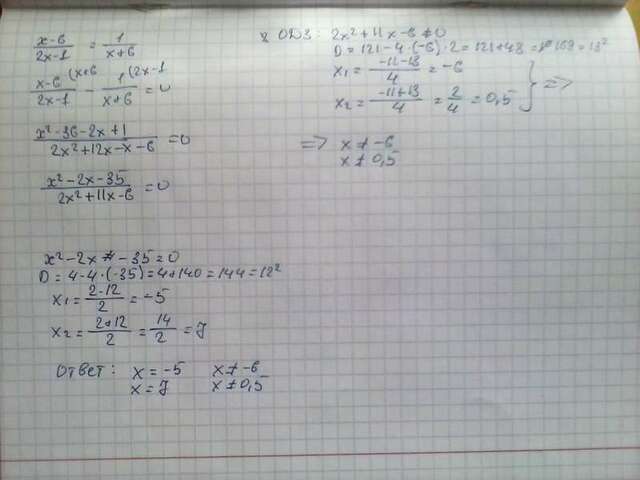 x-6/2x-1 = 1/x+6
x-6 (x+6/2x-1 - 1 (2x-1/x+6 = 0
x²-36-2x+1/2x²+12x-x-6 = 0
x²-2x-35/2x²+11x-6 = 0
x²-2x-35=0
D = 4-4·(-35)=4+140=144=12²
x₁ = 2-12/2 = -5
x₂ = 2+12/2 = 14/2 = 7
Ответ: x = -5 x ≠ -6
x = 7 x ≠ 0,5
ОДЗ: 2x²+11x-6≠0
D = 121-4·(-6)·2=121+48=169=13²
x₁ = -11-13/4 = -6
x₂ = -11+13/4 = 2/4 = 0,5 } =>
=> x ≠ -6
x ≠ 0,5